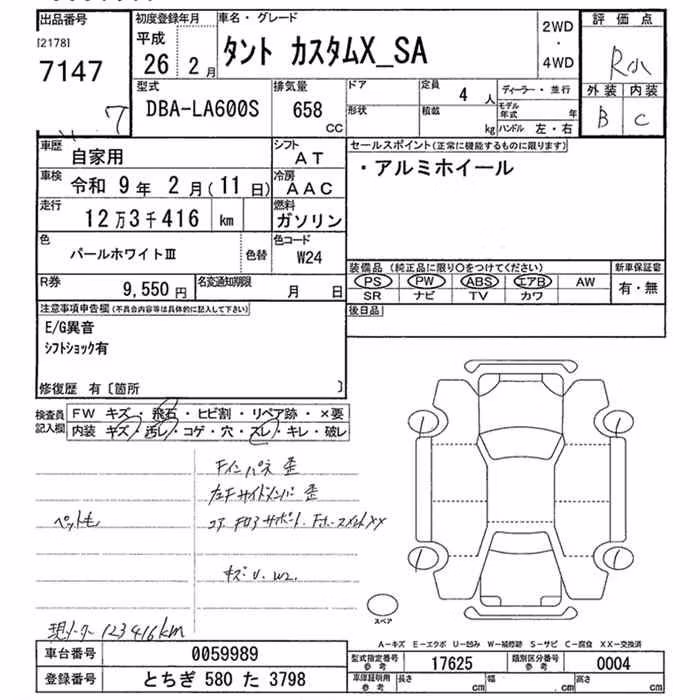 出品番号
[2178]
7147
7
初度登録年月
平成
26年 2月
車名・グレード
タント カスタムX_SA
2WD
・
4WD
評価点
R
外装 内装
B C
型式
DBA-LA600S
排気量
658
CC
ドア
形状
定員
4 人
積載
kg
ディーラー・並行
モデル年式 年
ハンドル 左・右
車歴
自家用
シフト
AT
車検
令和 9年 2月(11日)
冷房
AAC
走行
12万3千416 km
燃料
ガソリン
色
パールホワイトⅢ
色替
色コード
W24
R券
9,550円
名変通知期限
月 日
セールスポイント(正常に機能するものに限ります)
・アルミホイール
装備品 (純正品に限り〇をつけてください)
PS PW ABS エアB AW
SR ナビ TV カワ
新車保証書
有・無
後日品
注意事項申告欄(不具合内容等は具体的に記入して下さい)
E/G異音
シフトショック有
修復歴 有〔箇所 〕
検査員記入欄
FW キズ・飛石・ヒビ割・リペア跡・×要
内装 キズ・汚レ・コゲ・穴・スレ・キレ・破レ
Fインパネ 歪
左Fサイドメンバ 歪
コアサポート
XX
ペットも
キズ U. W2.
現メーター 123416km
スペア
A-キズ E-エクボ U-凹み W-補修跡 S-サビ C-腐食 XX-交換済
車台番号
0059989
登録番号
とちぎ 580 た 3798
型式指定番号
参考
17625
類別区分番号
参考
0004
車庫証明用
参考
長さ cm
幅 cm
高さ cm